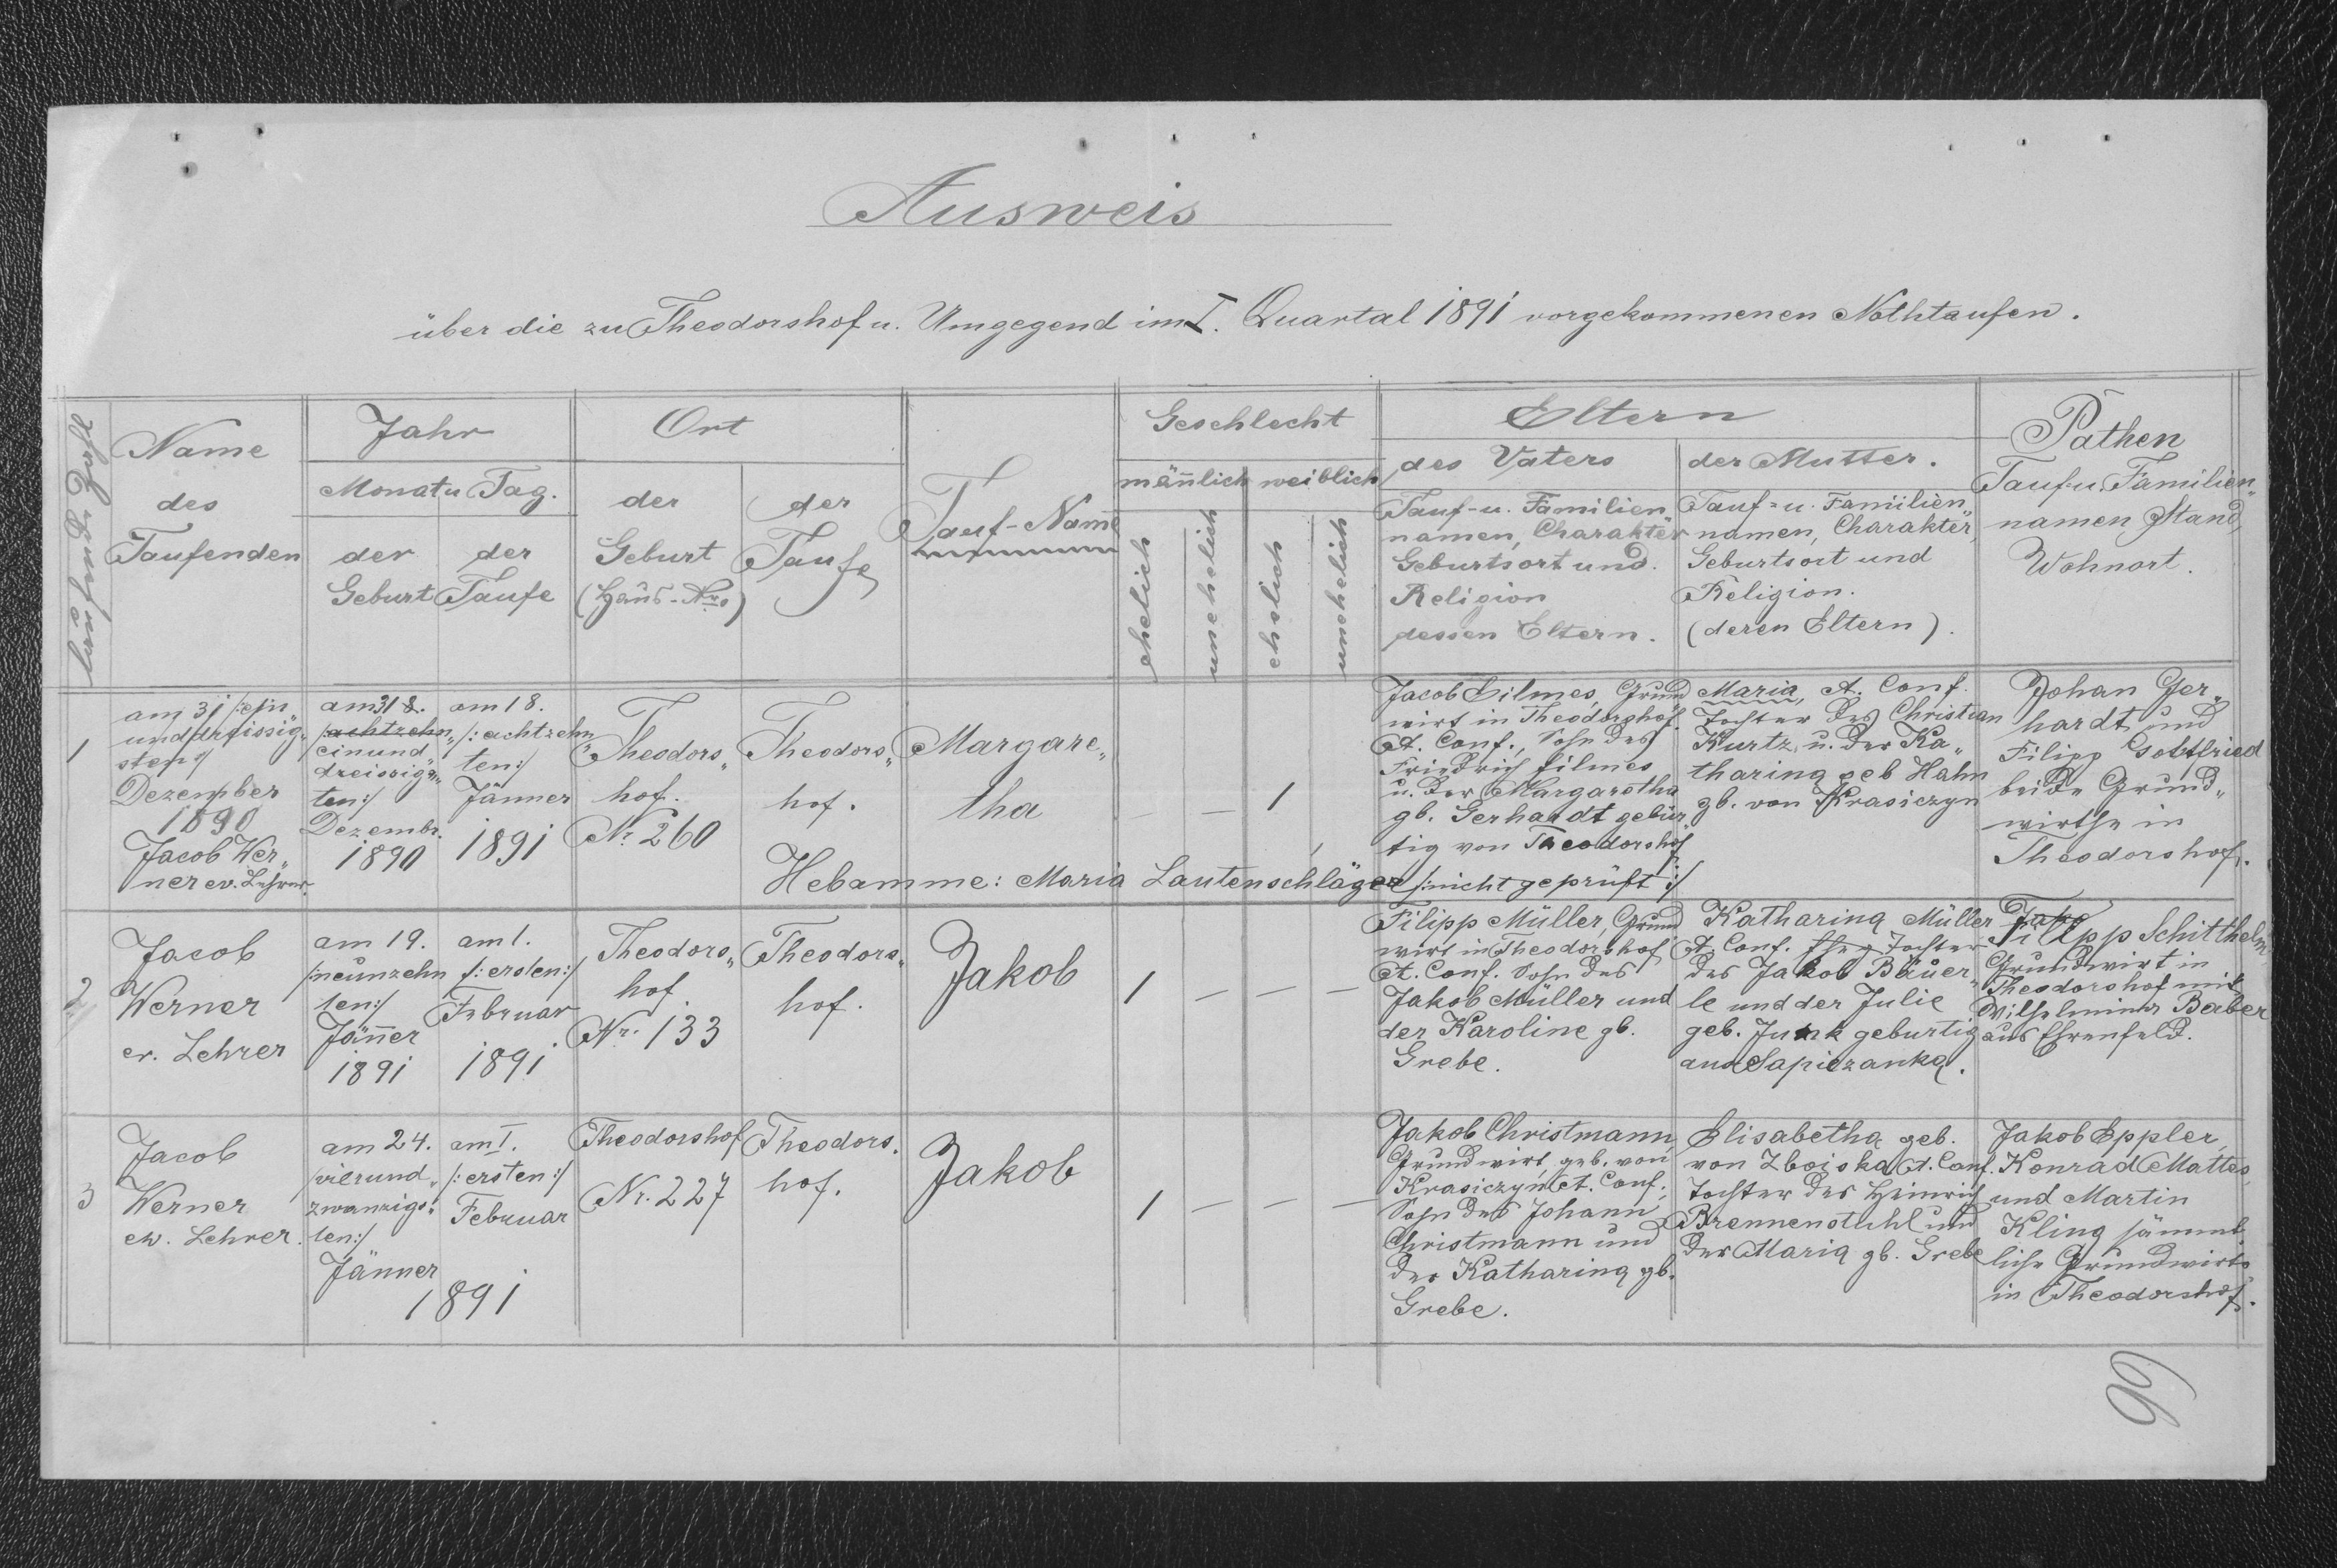 Ausweis
über die zu Theodorshof u. Umgegend im I. Quartal 1891 vorgekommenen Nothtaufen.
Name
des
Taufenden
Jahr
Monat u Tag.
der
Geburt
der
Taufe
Ort
der
Geburt
(Haus-Nro)
der
Taufe
Tauf-Name
Geschlecht
männlich
weiblich
ehelich
unehelich
ehelich
unehelich
Eltern
des Vaters
Tauf-u. Familien
namen, Charakter
Geburtsort und
Religion
dessen Eltern.
der Mutter.
Tauf-u. Familien„
namen, Charakter,
Geburtsort und
Religion.
(deren Eltern).
Pathen
Tauf u. Familien„
namen Stand,
Wohnort.
1
am 31 /:ein
und dreissig„
sten:/
Dezember
1890
Jacob Wer„
ner ev. Lehrer.
am 31 8.
/:achtzehn„
einund„
dreissig„
ten:/
Dezembr.
1890
am 18.
/:achtzehn„
ten:/
Jänner
1891
Theodors„
hof.
Nr. 260
Theodors„
hof.
Margare„
tha
— — 1
Jacob Filmes, Grund
wirt in Theodorshof
A. Conf., Sohn des
Friedrich Filmes
u. der Margaretha
gb. Gerhardt gebür„
tig von Theodorshof
Maria, A. Conf.
Tochter des Christian
Kurtz u. der Ka„
tharina geb Hahn
gb. von Krasiczyn
Johan Ger„
hardt und
Filipp Gottfried
beide Grund„
wirthe in
Theodorshof.
Hebamme: Maria Lautenschläger /:nicht geprüft:/
2
Jacob
Werner
ev. Lehrer
am 19.
/:neunzehn
ten:/
Jänner
1891
am 1.
/:ersten:/
Februar
1891
Theodors„
hof.
Nr. 133
Theodors„
hof.
Jakob
1 — — —
Filipp Müller, Grund
wirt in Theodorshof
A. Conf. Sohn des
Jakob Müller und
der Karoline gb.
Grebe.
Katharina Müller
A. Conf. Tochter
des Jakob Bäuer„
le und der Julie
geb. Junk geburtig
aus Sapiezanka.
Jako
Filipp Schitthelm
Grundwirt in
Theodorshof mit
Wilhelmina Berber
aus Ehrenfeld.
3
Jacob
Werner
ev. Lehrer.
am 24.
/:vierund„
zwanzigs„
ten:/
Jänner
1891
am I.
/:ersten:/
Februar
Theodorshof
Nr. 227
Theodors.
hof.
Jakob
1 — — —
Jakob Christmann,
Grundwirt, geb. von
Krasiczyn A. Conf.;
Sohn des Johann
Christmann und
der Katharina gb.
Grebe.
Elisabetha geb.
von Zboiska, A. Conf.
Tochter des Heinrich
Brennenstuhl und
der Maria gb. Grebe
Jakob Eppler,
Konrad Mattes,
und Martin
Kling sämmt„
liche Grundwirte
in Theodorshof.
99